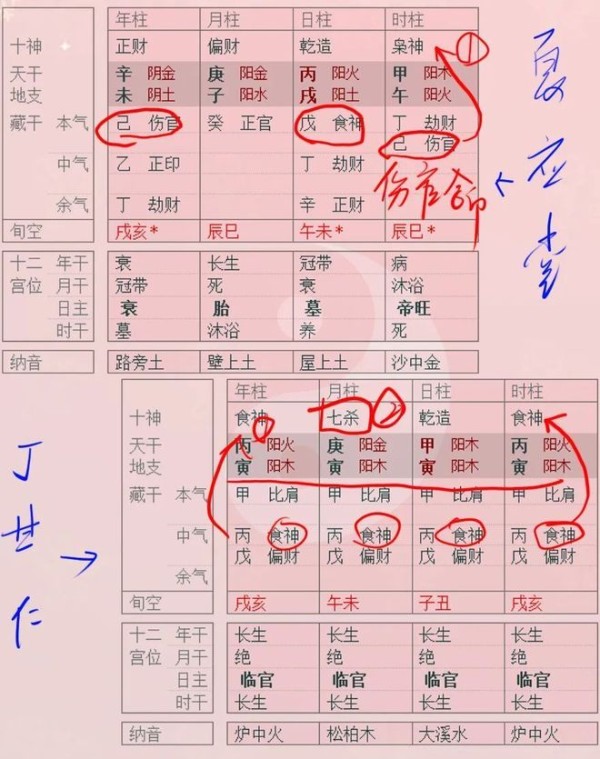 年柱 月柱 日柱 时柱
十神 正财 偏财 乾造 枭神 ①
天干 辛 阴金 庚 阳金 丙 阳火 甲 阳木
地支 未 阴土 子 阳水 戌 阳土 午 阳火
藏干 本气 己 伤官 癸 正官 戊 食神 丁 劫财
己 伤官
中气 乙 正印 丁 劫财
余气 丁 劫财 辛 正财
伤官合印
旬空 戌亥* 辰巳 午未* 辰巳*
十二 年干 衰 长生 冠带 病
宫位 月干 冠带 死 衰 沐浴
日主 衰 胎 墓 帝旺
时干 墓 沐浴 养 死
纳音 路旁土 壁上土 屋上土 沙中金
夏应堂
年柱 月柱 日柱 时柱
十神 食神 七杀 ② 乾造 食神
①
天干 丙 阳火 庚 阳金 甲 阳木 丙 阳火
地支 寅 阳木 寅 阳木 寅 阳木 寅 阳木
藏干 本气 甲 比肩 甲 比肩 甲 比肩 甲 比肩
中气 丙 食神 丙 食神 丙 食神 丙 食神
戊 偏财 戊 偏财 戊 偏财 戊 偏财
余气
旬空 戌亥 午未 子丑 戌亥
十二 年干 长生 长生 长生 长生
宫位 月干 绝 绝 绝 绝
日主 临官 临官 临官 临官
时干 长生 长生 长生 长生
纳音 炉中火 松柏木 大溪水 炉中火
丁甘仁